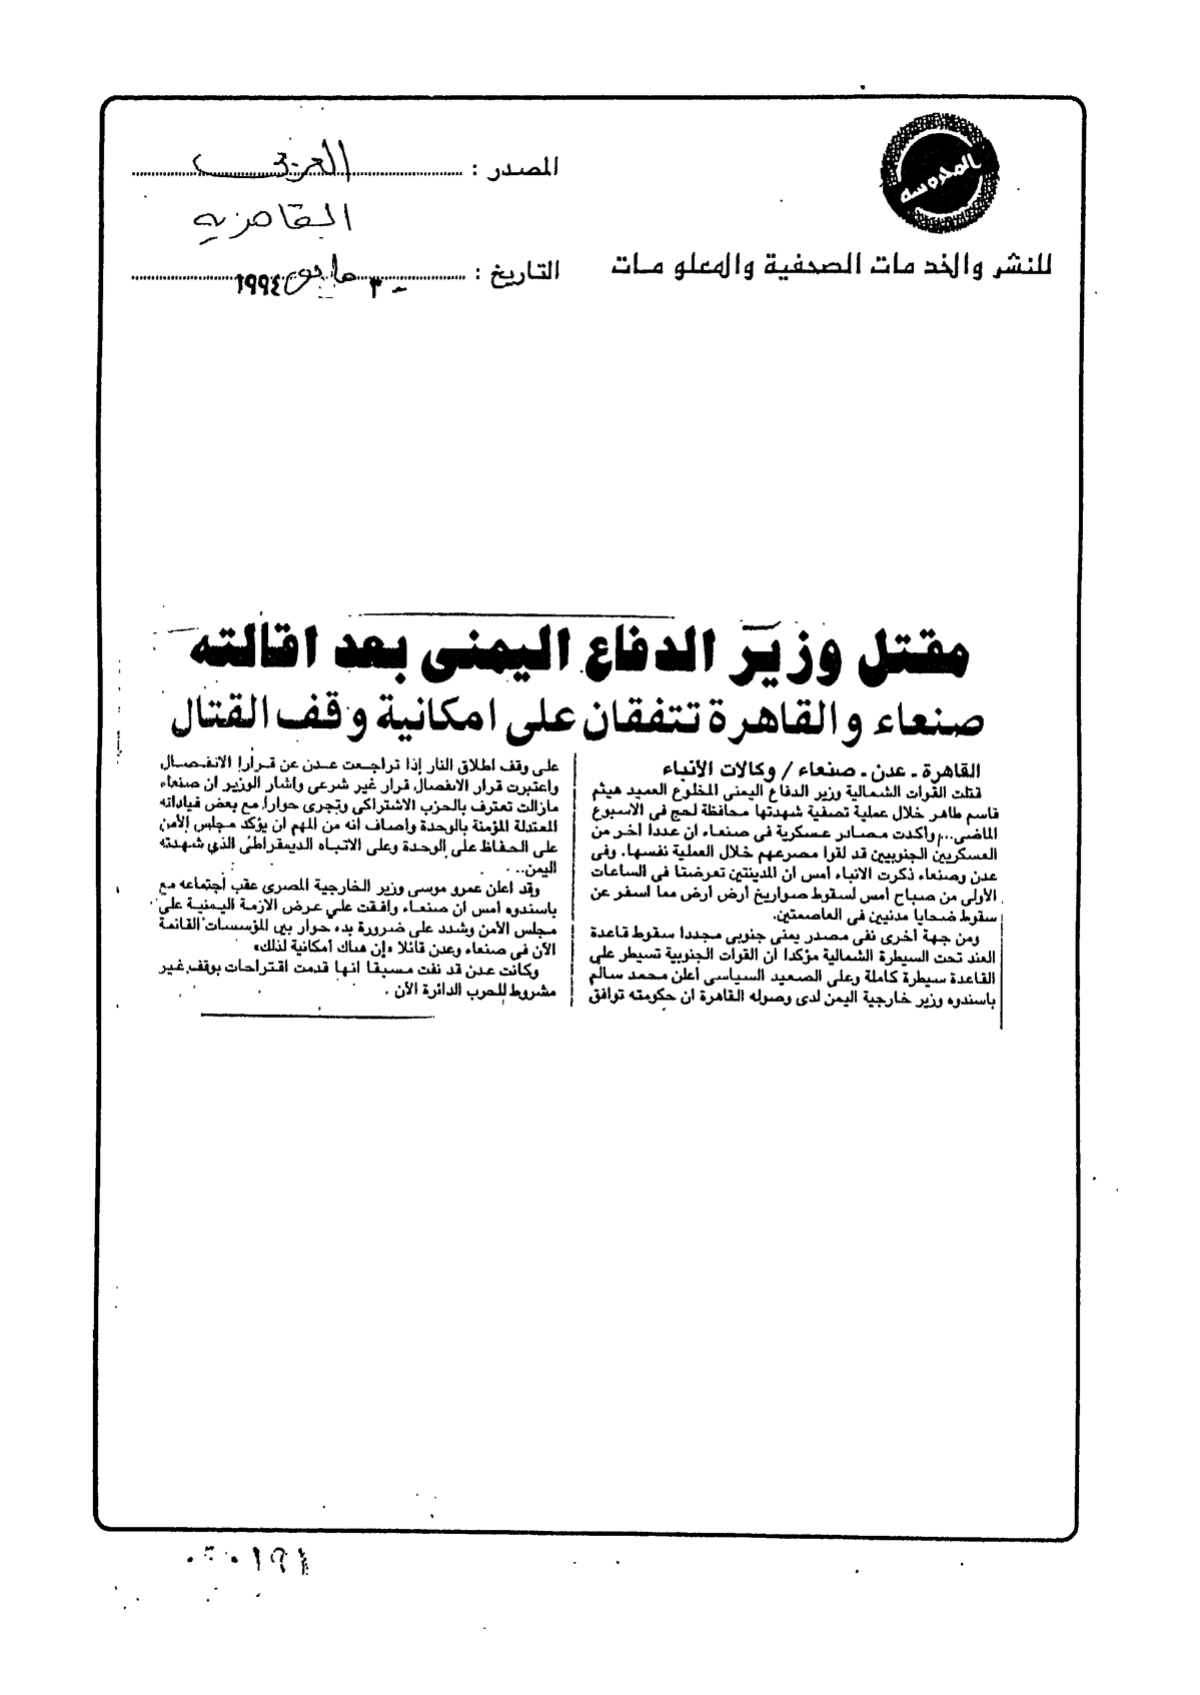 المحروسة
للنشر والخدمات الصحفية والمعلومات
المصدر : العربى
القاهرية
التاريخ : ٣٠ مايو ١٩٩٤
مقتل وزير الدفاع اليمنى بعد اقالته
صنعاء والقاهرة تتفقان على امكانية وقف القتال
القاهرة ـ عدن ـ صنعاء / وكالات الأنباء
قتلت القوات الشمالية وزير الدفاع اليمنى المخلوع العميد هيثم
قاسم طاهر خلال عملية تصفية شهدتها محافظة لحج فى الاسبوع
الماضى... واكدت مصادر عسكرية فى صنعاء ان عددا اخر من
العسكريين الجنوبيين قد لقوا مصرعهم خلال العملية نفسها. وفى
عدن وصنعاء ذكرت الانباء أمس أن المدينتين تعرضتا فى الساعات
الأولى من صباح أمس لسقوط صواريخ أرض أرض مما اسفر عن
سقوط ضحايا مدنيين فى العاصمتين.
ومن جهة أخرى نفى مصدر يمنى جنوبى مجددا سقوط قاعدة
العند تحت السيطرة الشمالية مؤكدا أن القوات الجنوبية تسيطر على
القاعدة سيطرة كاملة وعلى الصعيد السياسى أعلن محمد سالم
باسندوه وزير خارجية اليمن لدى وصوله القاهرة ان حكومته توافق
على وقف اطلاق النار إذا تراجعت عدن عن قرارا الانفصال
واعتبرت قرار الانفصال قرار غير شرعى واشار الوزير ان صنعاء
مازالت تعترف بالحزب الاشتراكى وتجرى حوارا مع بعض قياداته
المعتدلة المؤمنة بالوحدة وأضاف انه من المهم ان يؤكد مجلس الأمن
على الحفاظ على الوحدة وعلى الاتباه الديمقراطى الذي شهدته
اليمن..
وقد اعلن عمرو موسى وزير الخارجية المصرى عقب أجتماعه مع
باسندوه أمس ان صنعاء وافقت علي عرض الازمة اليمنية على
مجلس الأمن وشدد على ضرورة بدء حوار بين المؤسسات القائمة
الآن فى صنعاء وعدن قائلا «إن هناك أمكانية لذلك»
وكانت عدن قد نفت مسبقا انها قدمت اقتراحات بوقف غير
مشروط للحرب الدائرة الآن .